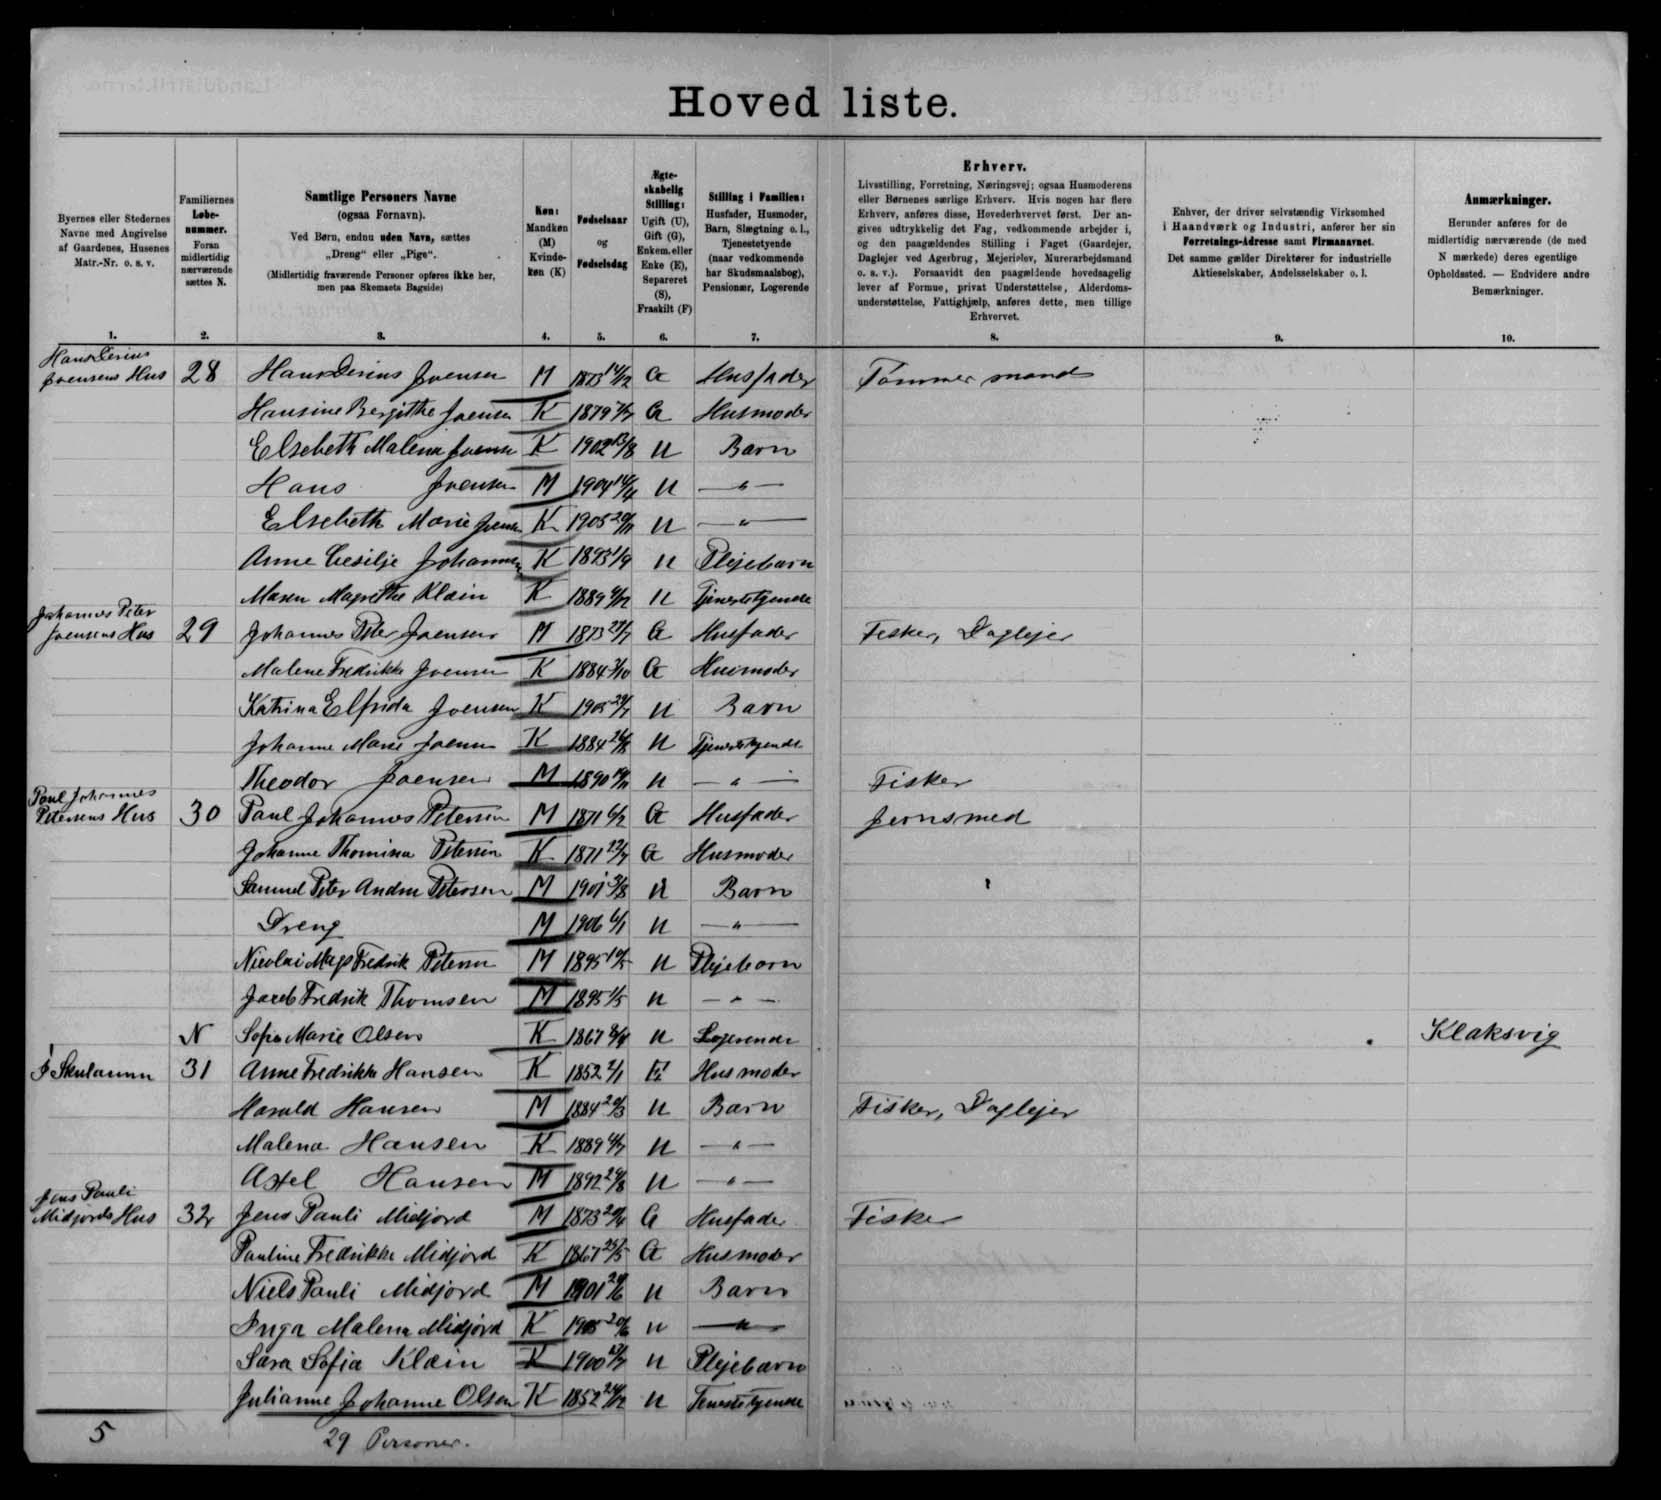 Hoved liste.
Byernes eller Stedernes
Navne med Angivelse
af Gaardenes, Husenes
Matr.-Nr. o. s. v.
1.
Familiernes
Løbe-
nummer.
Foran
midlertidig
nærværende
sættes N.
2.
Samtlige Personers Navne
(ogsaa Fornavn).
Ved Børn, endnu uden Navn, sættes
„Dreng“ eller „Pige“.
(Midlertidig fraværende Personer opføres ikke her,
men paa Skemaets Bagside)
3.
Køn:
Mandkøn
(M)
Kvinde-
køn (K)
4.
Fødselsaar
og
Fødselsdag
5.
Ægte-
skabelig
Stilling:
Ugift (U),
Gift (G),
Enkem. eller
Enke (E),
Separeret
(S),
Fraskilt (F)
6.
Stilling i Familien:
Husfader, Husmoder,
Barn, Slægtning o. l.,
Tjenestetyende
(naar vedkommende
har Skudsmaalsbog),
Pensionær, Logerende
7.
Erhverv.
Livsstilling, Forretning, Næringsvej; ogsaa Husmoderens
eller Børnenes særlige Erhverv. Hvis nogen har flere
Erhverv, anføres disse, Hovederhvervet først. Der an-
gives udtrykkelig det Fag, vedkommende arbejder i,
og den paagældendes Stilling i Faget (Gaardejer,
Daglejer ved Agerbrug, Mejerielev, Murerarbejdsmand
o. s. v.). Forsaavidt den paagældende hovedsagelig
lever af Formue, privat Understøttelse, Alderdoms-
understøttelse, Fattighjælp, anføres dette, men tillige
Erhvervet.
8.
Enhver, der driver selvstændig Virksomhed
i Haandværk og Industri, anfører her sin
Forretnings-Adresse samt Firmanavnet.
Det samme gælder Direktører for industrielle
Aktieselskaber, Andelsselskaber o. l.
9.
Anmærkninger.
Herunder anføres for de
midlertidig nærværende (de med
N mærkede) deres egentlige
Opholdssted. — Endvidere andre
Bemærkninger.
10.
Joensens Hus 28 Hans Joensen M 1873 G Husfader Tømmermand
Hansine Joensen K 1879 G Husmoder
Elsebeth Malena Joensen K 1902 13/8 U Barn
Hans Joensen M 1904 U — „ —
Elsebeth Marie Joensen K 1905 U — „ —
Anne Cesilje Johannesen K 1893 U Plejebarn
Maren Magrethe Klæin K 1889 U Tjenestetyende
Johannes Peter
Joensens Hus 29 Johannes Peter Joensen M 1873 G Husfader Fisker, Daglejer
Malene Fredrikke Joensen K 1884 G Husmoder
Katrina Elfrida Joensen K 1905 U Barn
Johanne Marie Joensen K 1884 U Tjenestetyende
Theodor Joensen M 1890 U — „ — Fisker
Poul Johannes
Petersens Hus 30 Poul Johannes Petersen M 1871 G Husfader Jernsmed
Johanne Thomina Petersen K 1871 G Husmoder
Samuel Peter Andrea Petersen M 1901 U Barn
Dreng M 1906 U — „ —
Nicolai Fredrik Petersen M 1895 U Plejebarn
Jacob Fredrik Thomsen M 1895 1/5 U — „ —
N Sofia Marie Olsen K 1867 U Logerende Klaksvig
31 Anne Fredrikke Hansen K 1852 2/1 E Husmoder
Harald Hansen M 1884 U Barn Fisker, Daglejer
Malena Hansen K 1889 U — „ —
Axel Hansen M 1892 U — „ —
Jens Pauli
Midjords Hus 32 Jens Pauli Midjord M 1873 G Husfader Fisker
Pauline Fredrikke Midjord K 1867 25/5 G Husmoder
Niels Pauli Midjord M 1901 U Barn
Inga Malena Midjørd K 1905 U — „ —
Sara Sofia Klæin K 1900 U Plejebarn
Julianne Johanne Olsen K 1852 U Tenestetyende
5 29 Personer.